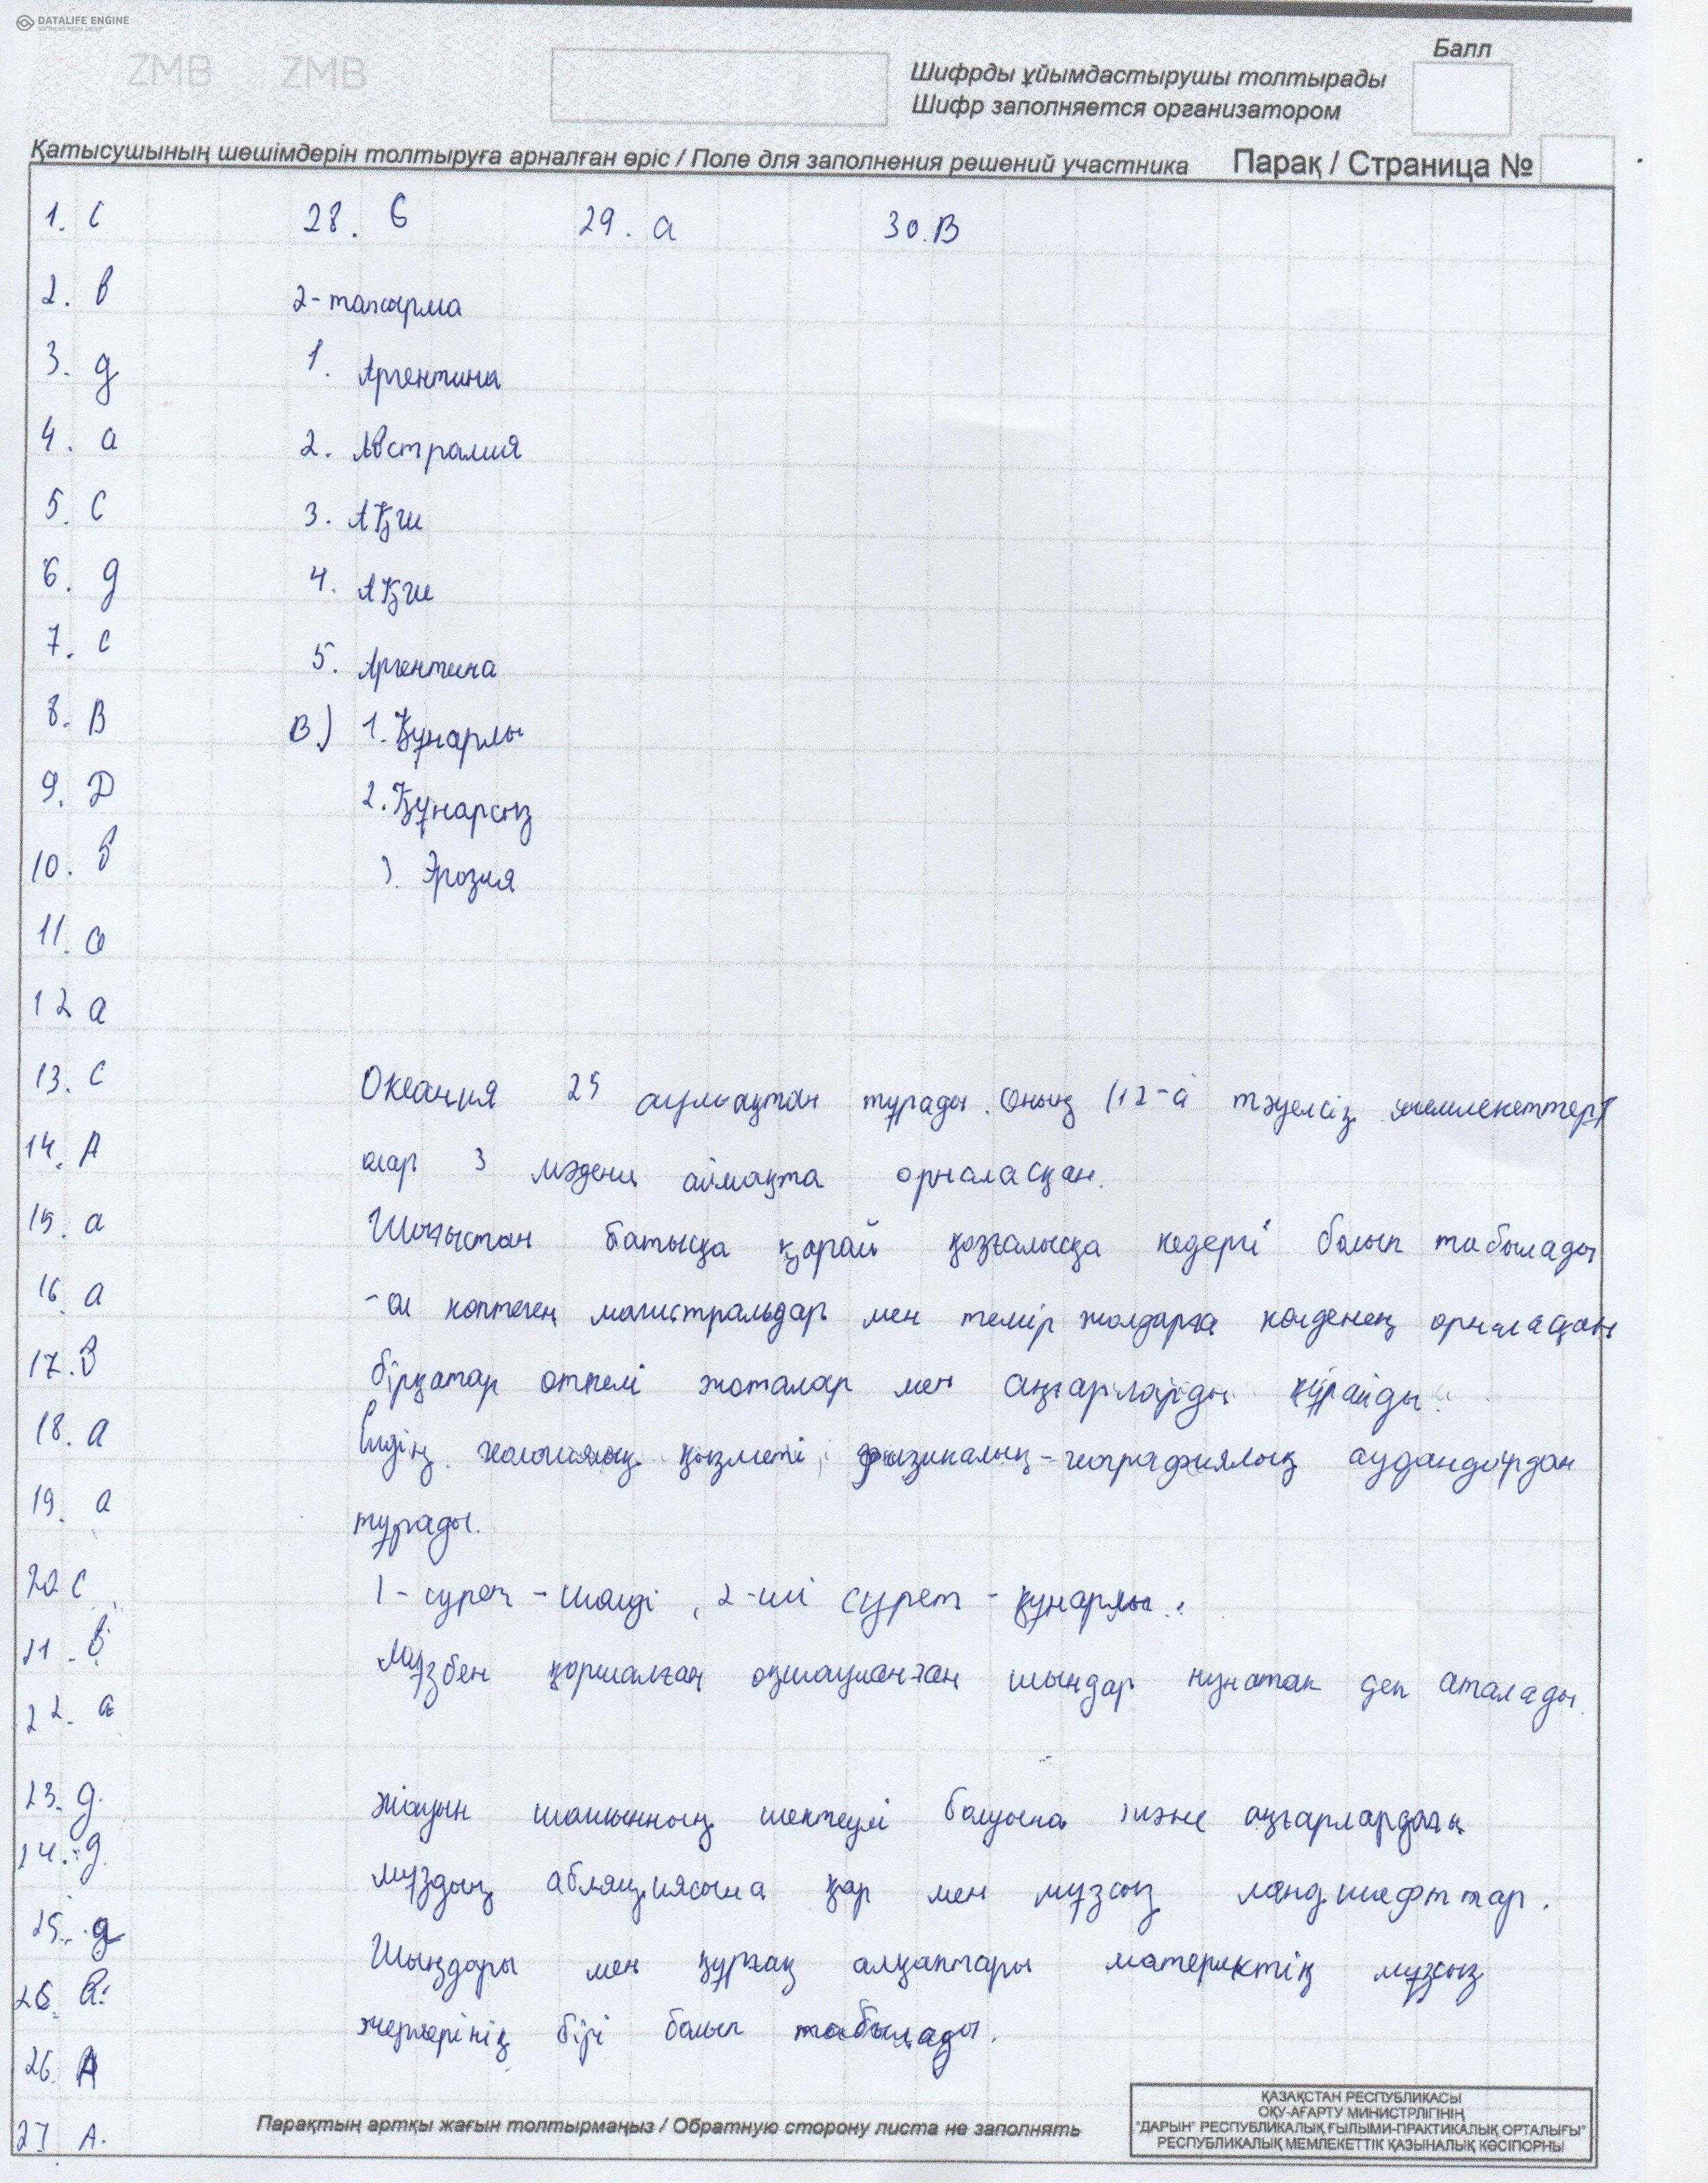 DATALIFE ENGINE
SOFTNEWS MEDIA GROUP
ZMB ZMB
Балл
Шифрды ұйымдастырушы толтырады
Шифр заполняется организатором
Қатысушының шешімдерін толтыруға арналған өріс / Поле для заполнения решений участника Парақ / Страница №
1. с 28. в 29. а 30. В
2. в 2-тапсырма
3. д 1. Аргентина
4. а 2. Австралия
5. С 3. АҚШ
6. д 4. АҚШ
7. с 5. Аргентина
8. В В) 1. Құнарлы
9. D 2. Құнарсыз
10. в 3. Эрозия
11.
12 а
13. С Океания 25 аумақтан тұрады. Оның 12-і тәуелсіз мемлекеттер
14. А олар 3 мәдени аймақта орналасқан.
15. а Шығыстан батысқа қарай қозғалысқа кедергі болып табылады
16. а - ол көптеген магистральдар мен темір жолдарға көлденең орналасқан
17. В бірқатар өтпелі жоталар мен аңғарларды құрайды.
18. а Елдің қызметі физикалық-географиялық аудандардан
19. а тұрады.
20 с 1-сурет - шөлді, 2-ші сурет - құнарлы.
21. в Мұзбен қоршалған оқшауланған шыңдар нунатак деп аталады.
22. а
23. д. Жауын шашынның шектеулі болуына және аңғарлардағы
24. д. мұздың абляциясына қар мен мұзсыз ландшафттар.
25. д Шыңдары мен құрғақ алқаптары материктің мұзсыз
26. жерлерінің бірі болып табылады.
26 А
27 А.
Парақтың артқы жағын толтырмаңыз / Обратную сторону листа не заполнять
ҚАЗАҚСТАН РЕСПУБЛИКАСЫ
ОҚУ-АҒАРТУ МИНИСТРЛІГІНІҢ
"ДАРЫН" РЕСПУБЛИКАЛЫҚ ҒЫЛЫМИ-ПРАКТИКАЛЫҚ ОРТАЛЫҒЫ"
РЕСПУБЛИКАЛЫҚ МЕМЛЕКЕТТІК ҚАЗЫНАЛЫҚ КӘСІПОРНЫ